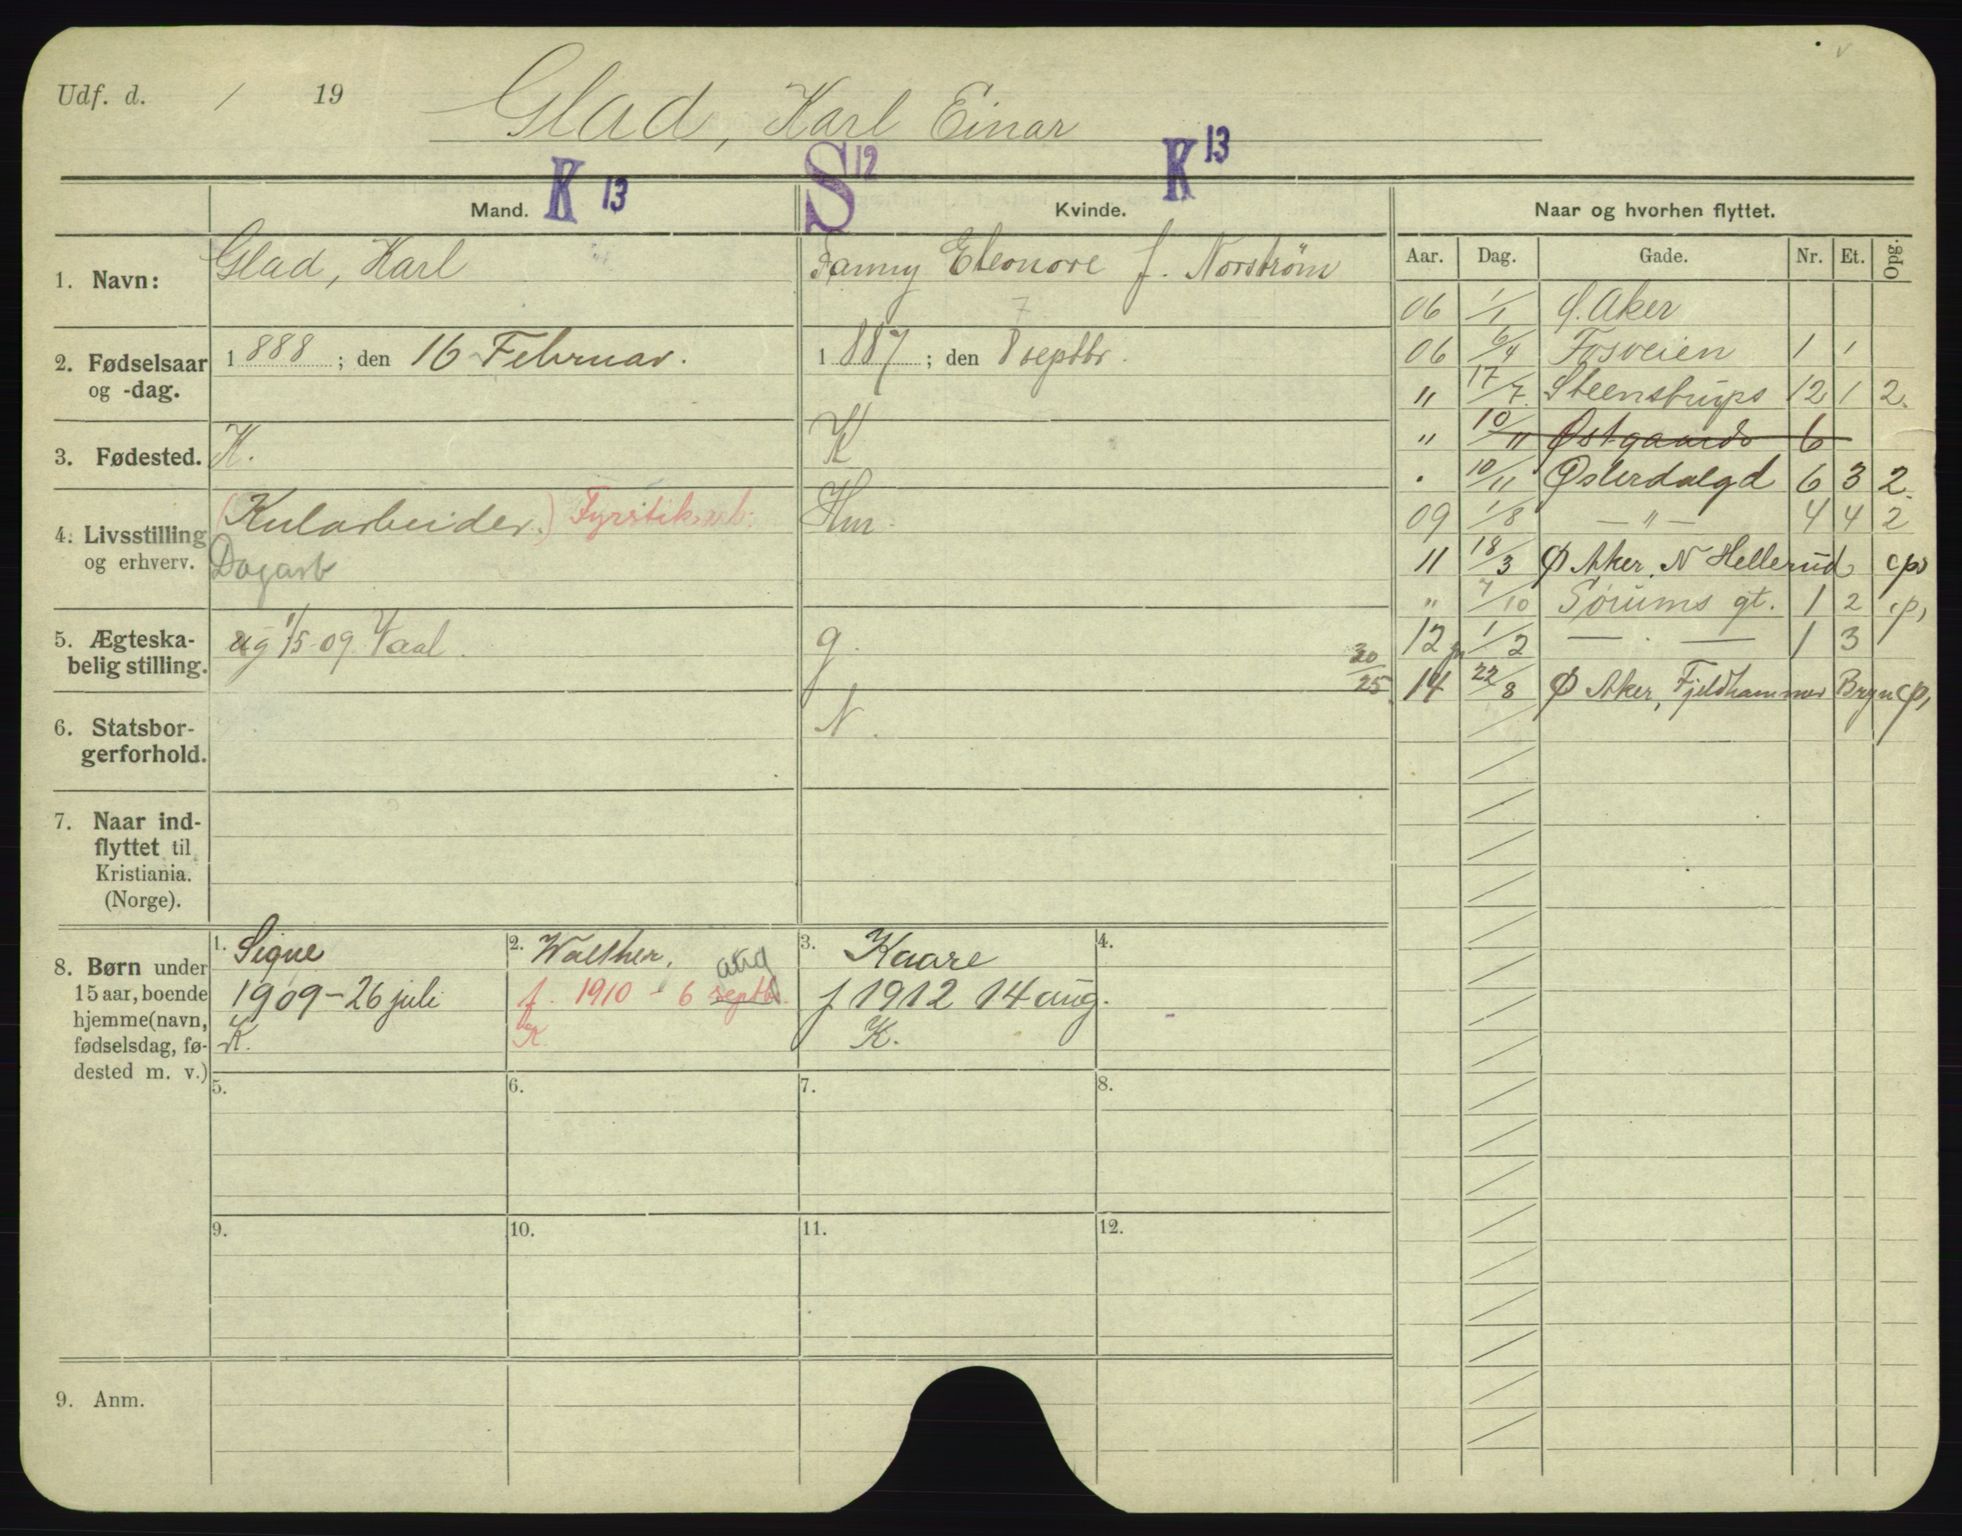 Udf. d. / 19
Glad, Karl Einar
K 13 S 12 K 13
Mand. Kvinde. Naar og hvorhen flyttet.
Aar. Dag. Gade. Nr. Et. Opg.
1. Navn: Glad, Karl
Fanny Eleonore f. Norstrøm
2. Fødselsaar og -dag. 1888; den 16 Februar.
1887; den 8 septbr.
7
3. Fødested. K.
K
4. Livsstilling og erhverv. (Kularbeider.) Fyrstikarb.
Dagarb
Hur
5. Ægteskabelig stilling. ug 1/5-09 Vaal.
g.
6. Statsborgerforhold.
N.
7. Naar indflyttet til Kristiania. (Norge).
06 1/1 Ø. Aker
06 6/4 Fosveien 1 1
" 17/7 Steenstrups 12 1 2.
" 10/11 Østgaards 6
. 10/11 Østerdalgd 6 3 2.
09 1/8 — " — 4 4 2
11 18/3 Ø Aker, N Hellerud cps
" 7/10 Sørums gt. 1 2 cp,
12 1/2 — . — 1 3
30/25
14 22/8 Ø Aker, Fjeldhammer Bryn cp,
8. Børn under 15 aar, boende hjemme (navn, fødselsdag, fødested m. v.)
1. Signe
1909-26 juli
K.
2. Walther,
aug
f. 1910 - 6 septbr.
K
3. Kaare
f 1912 14 aug.
K.
4.
5. 6. 7. 8.
9. 10. 11. 12.
9. Anm.